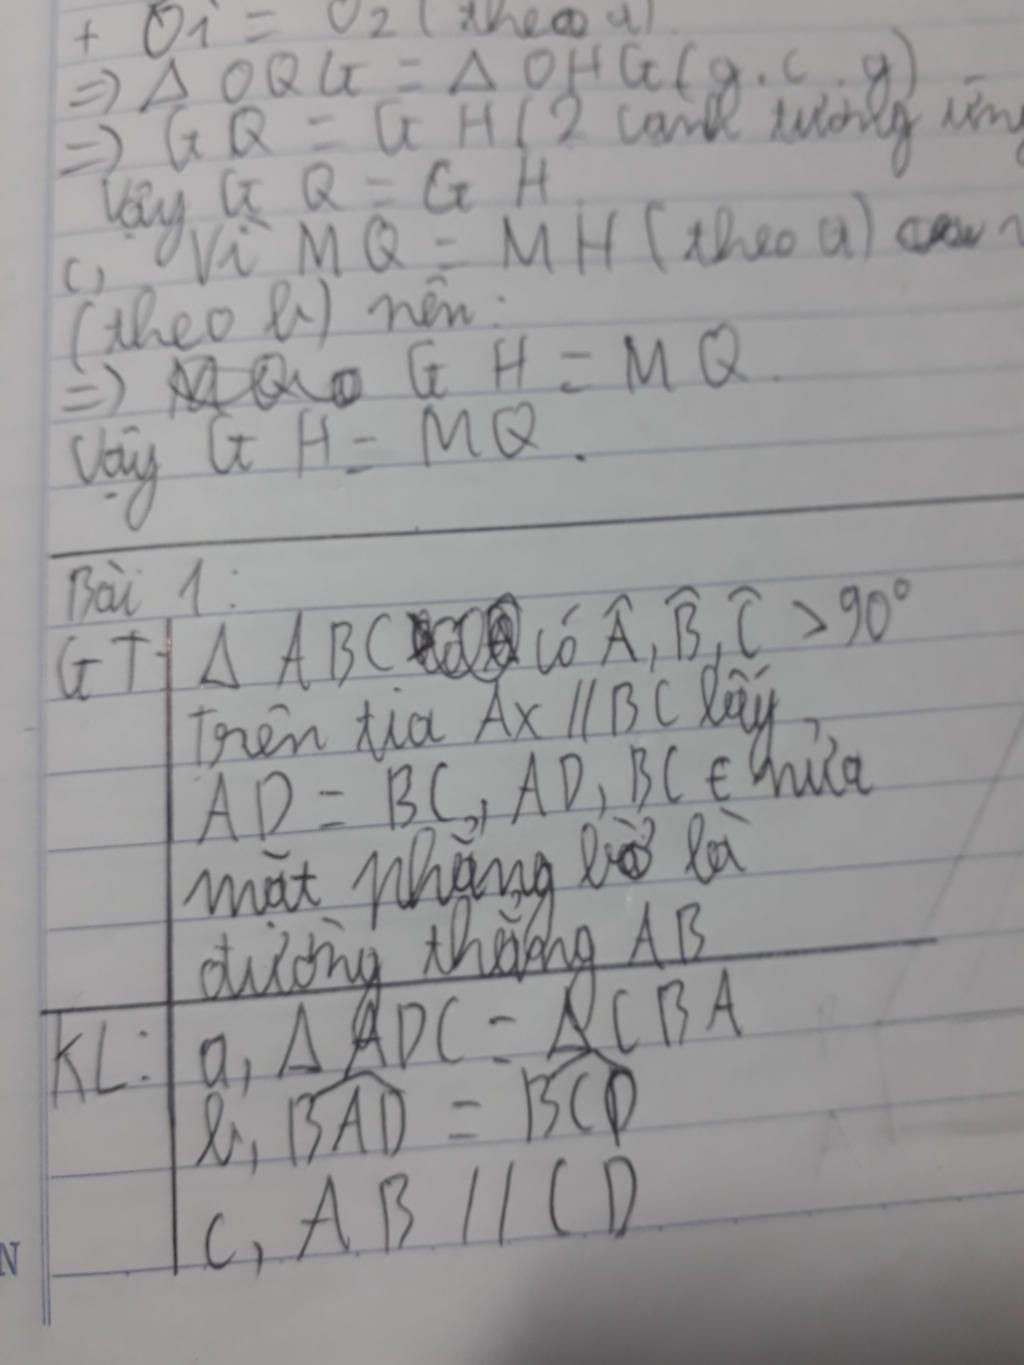 + Ô1 = Ô2 (theo a).
=> Δ OQG = Δ OHG (g.c.g)
=> GQ = GH (2 cạnh tương ứng
Vậy GQ = GH.
c, Vì MQ = MH (theo a)
(theo b) nên:
=> GH = MQ.
Vậy GH = MQ.
Bài 1:
GT: Δ ABC có Â, B̂, Ĉ > 90°
Trên tia Ax // BC lấy
AD = BC, AD, BC ∈ nửa
mặt phẳng bờ là
đường thẳng AB
KL: a, Δ ADC = Δ CBA
b, \widehat{BAD} = \widehat{BCD}
c, AB // CD
N